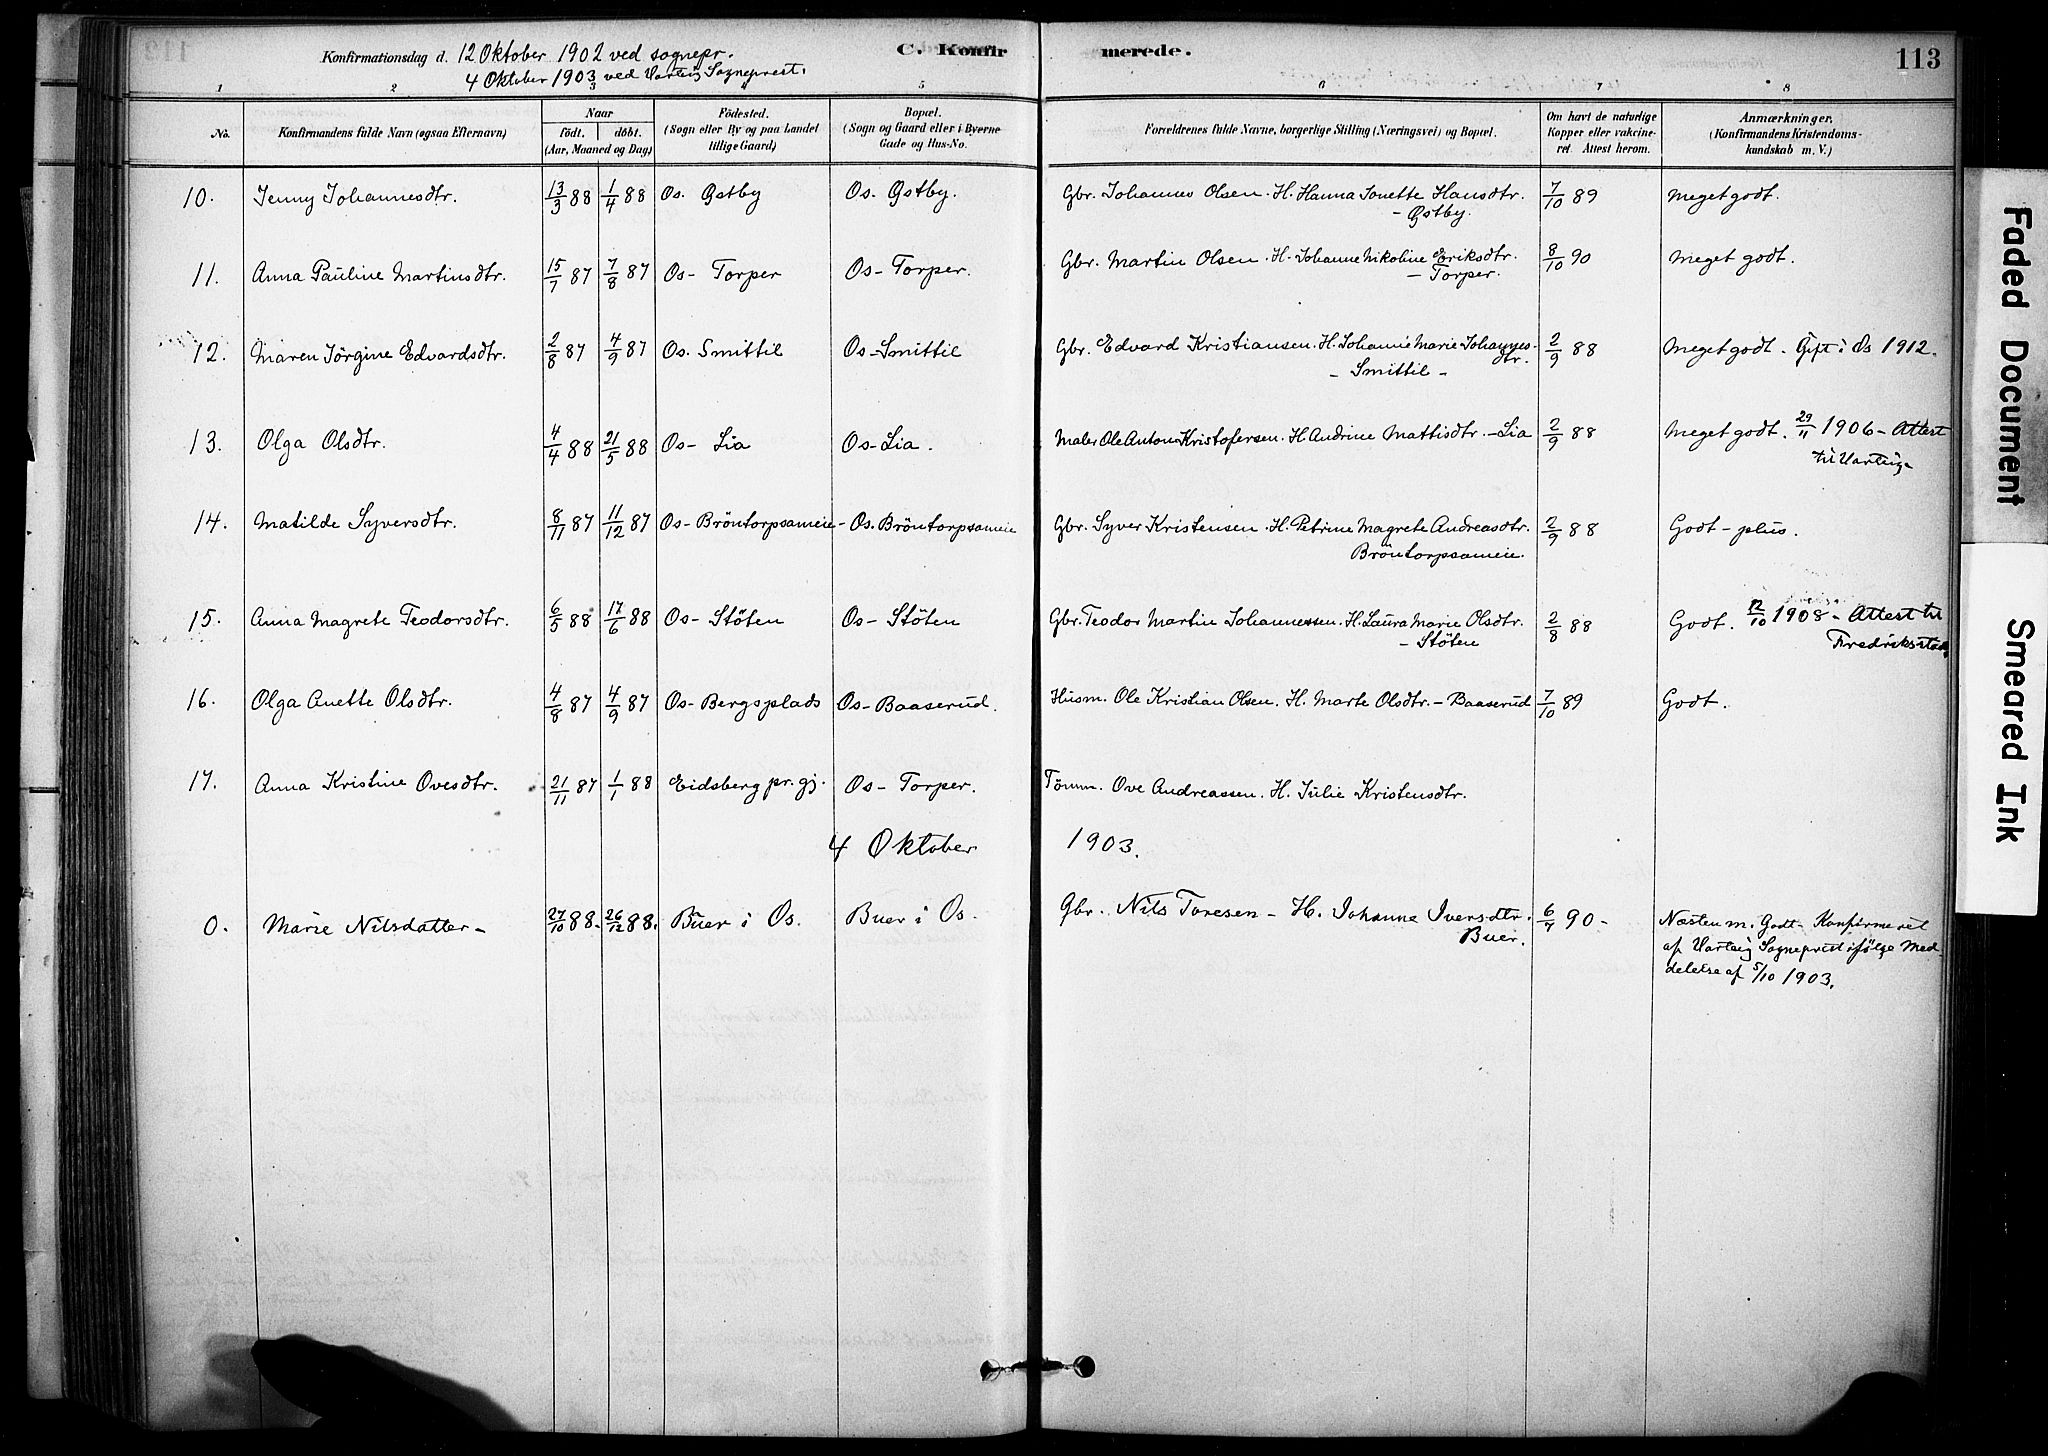 Konfirmationsdag d. 12 Oktober 1902 ved sognepr.
4 Oktober 1903 ved Varteig Sogneprest.
C. Konfirmerede.
113
1 2 3 4 5 6 7 8
No. Konfirmandens fulde Navn (ogsaa Efternavn) Naar født. døbt. (Aar, Maaned og Dag) Fødested. (Sogn eller By og paa Landet tillige Gaard) Bopæl. (Sogn og Gaard eller i Byerne Gade og Hus-No. Forældrenes fulde Navne, borgerlige Stilling (Næringsvei) og Bopæl. Om havt de naturlige Kopper eller vakcineret. Attest herom. Anmærkninger, (Konfirmandens Kristendomskundskab m. V.)
10. Jenny Johannesdtr. 13/3 88 1/4 88 Os. Østby Os. Østby. Gbr. Johannes Olsen. H. Hanna Jonette Hansdtr. 7/10 89 Meget godt.
- Østby.
11. Anna Pauline Martinsdtr. 15/7 87 7/8 87 Os- Torper Os- Torper. Gbr. Martin Olsen. H. Johanne Nikoline Eriksdtr. 8/10 90 Meget godt.
- Torper.
12. Maren Jörgine Edvardsdtr. 2/8 87 4/9 87 Os. Smittil Os-Smittil Gbr. Edvard Kristiansen. H. Johanne Marie Johannes- 2/9 88 Meget godt. Gift i Os 1912.
dtr.
- Smittil -
13. Olga Olsdtr. 4/4 88 21/5 88 Os- Lia Os-Lia. Maler Ole Anton Kristofersen. H Andrine Mattisdtr. -Lia 2/9 88 Meget godt. 29/11 1906 - Attest
til Varteig-
14. Matilde Syversdtr. 8/11 87 11/12 87 Os- Bröntorpsameie - Os. Bröntorpsameie Gbr. Syver Kristensen. H. Petrine Magrete Andreasdtr. 2/9 88 Godt - plus.
Bröntorpsameie.
15. Anna Magrete Teodorsdtr. 6/5 88 17/6 88 Os- Stöten Os- Stöten Gbr. Teodor Martin Johannessen. H. Laura Marie Olsdtr. 2/8 88 Godt. 12/10 1908 - Attest til
- Stöten Fredriksstad
16. Olga Anette Olsdtr. 4/8 87 4/9 87 Os- Bergsplads Os- Baaserud. Husm. Ole Kristian Olsen. H. Marte Olsdtr. - Baaserud 7/10 89 Godt.
17. Anna Kristine Ovesdtr. 21/11 87 1/1 88 Eidsberg pr. gj. Os- Torper. Tömm. Ove Andreassen. H. Julie Kristensdtr.
4 Oktober 1903.
0. Marie Nilsdatter - 27/10 88. 26/12 88. Buer i Os. Buer i Os. Gbr. Nils Toresen - H. Johanne Iversdtr. 6/7 90 - Næsten m. Godt - Konfirmeret
Buer. af Varteig Sogneprest ifølge Med-
delelse af 5/10 1903.
Faded Document
Smeared Ink